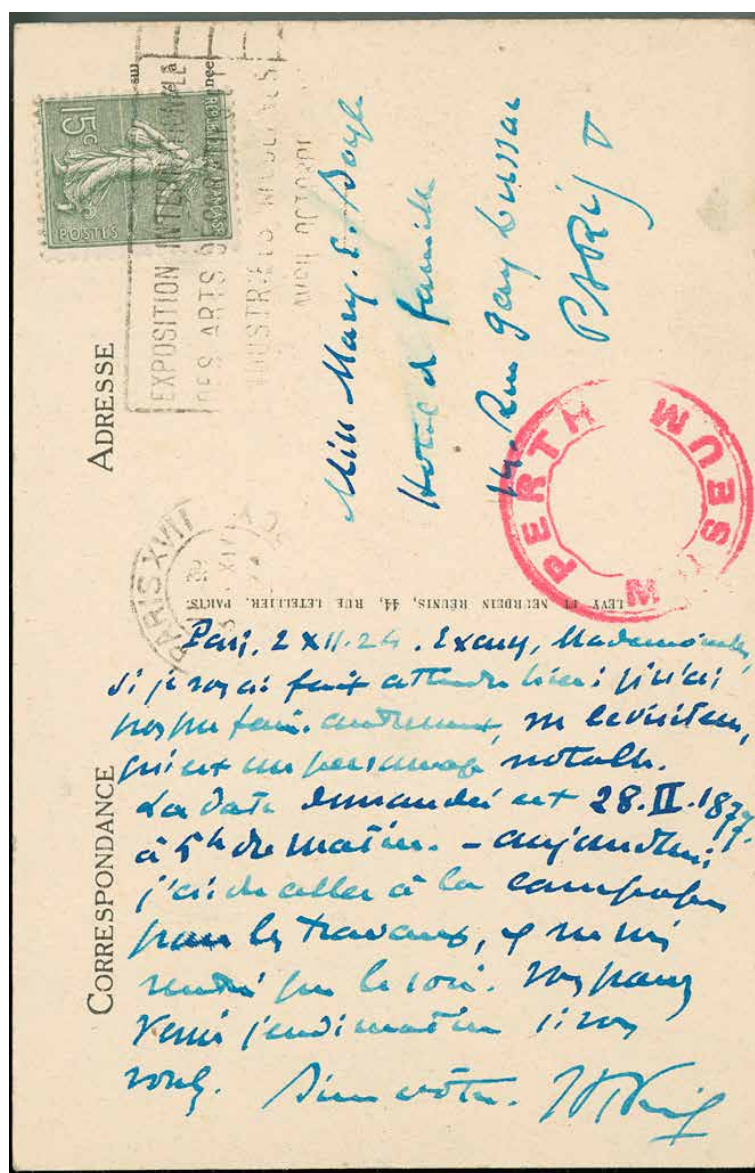 CORRESPONDANCE
ADRESSE
15c
POSTES
EXPOSITION INTERNATIONALE
DES ARTS DECORATIFS
INDUSTRIELS MODERNES
PARIS XVII
Miss Mary. E. Doyle
Hotel de famille
Rue Gay Lussac
PARIS V
PERTH MUSEUM
LEVY ET NEURDEIN RÉUNIS, 44, RUE LETELLIER, PARIS.
Paris, 2 XII. 24. Excusez, Mademoiselle,
si je vous ai fait attendre hier; je n'ai
pas pu faire autrement, vu le visiteur,
qui est un personnage notable.
La date demandée est 28.II.1877.
à 5h du matin. – aujourd'hui
j'ai dû aller à la campagne
pour les travaux, et ne suis
rentré que le soir. Vous pouvez
venir jeudi matin si vous
voulez. Bien vôtre.